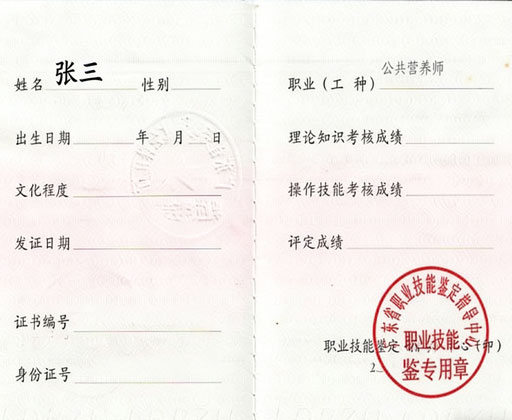 姓名 张三 性别
出生日期 年 月 日
文化程度
发证日期
证书编号
身份证号
职业（工 种） 公共营养师
理论知识考核成绩
操作技能考核成绩
评定成绩
职业技能鉴定 心（印）
东省职业技能鉴定指导中心
职业技能
鉴专用章
2